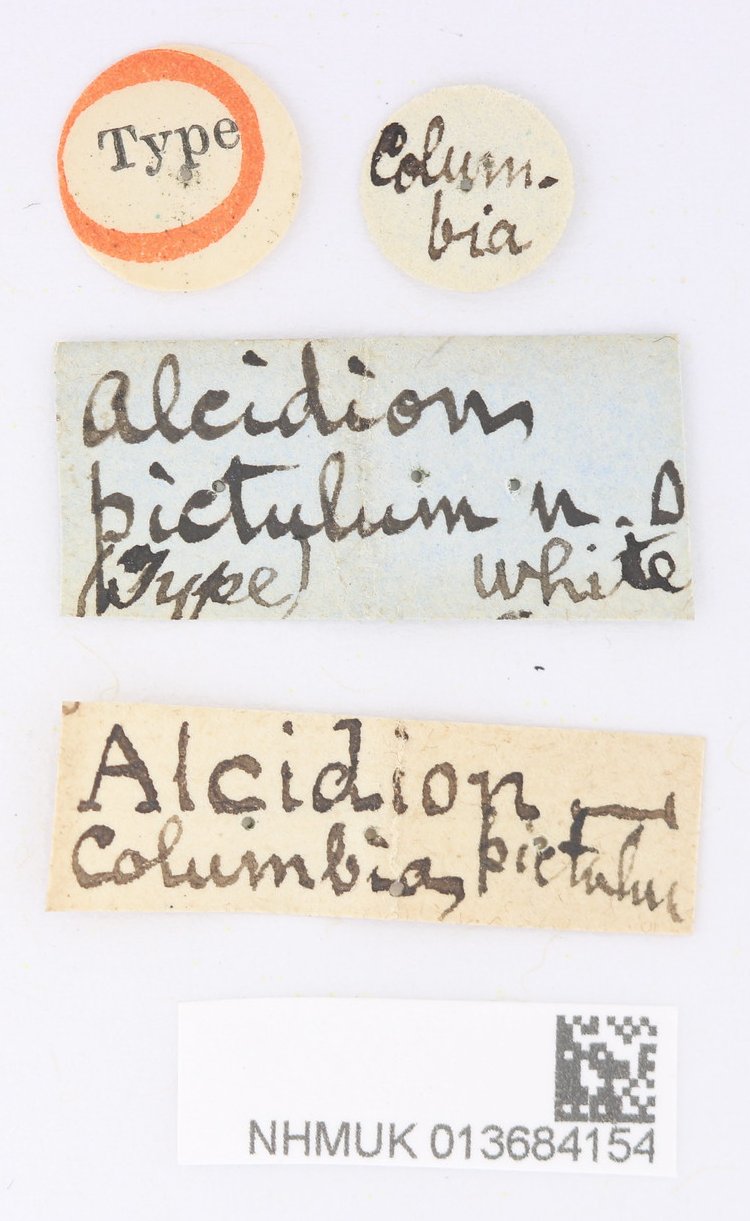 Type
Colum-
bia
Alcidion
pictulum n. s
(Type) White
Alcidion —
Columbia, pictulu
NHMUK 013684154